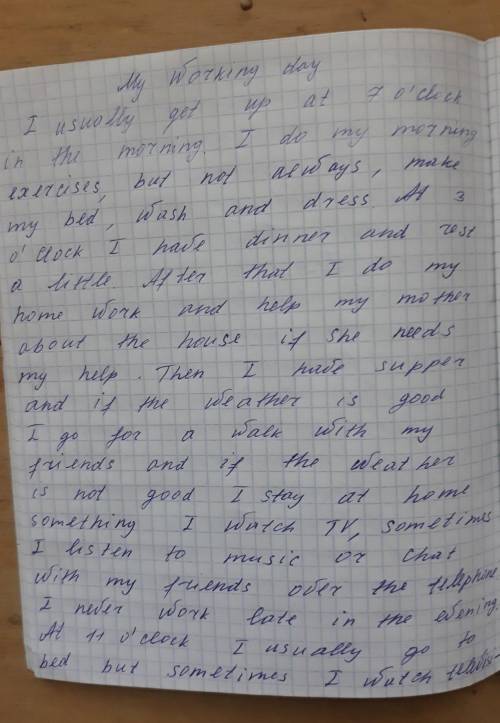 My Working day
I usually get up at 7 o'clock
in the morning. I do my morning
exercises, but not always, make
my bed, wash and dress At 3
o'clock I have dinner and rest
a little. After that I do my
home work and help my mother
about the house if she needs
my help. Then I have supper
and if the weather is good
I go for a walk with my
friends and if the weather
is not good I stay at home
something I watch TV, sometimes
I listen to music or chat
with my friends over the telephone
I never work late in the evening.
At 11 o'clock I usually go to
bed but sometimes I watch televis-